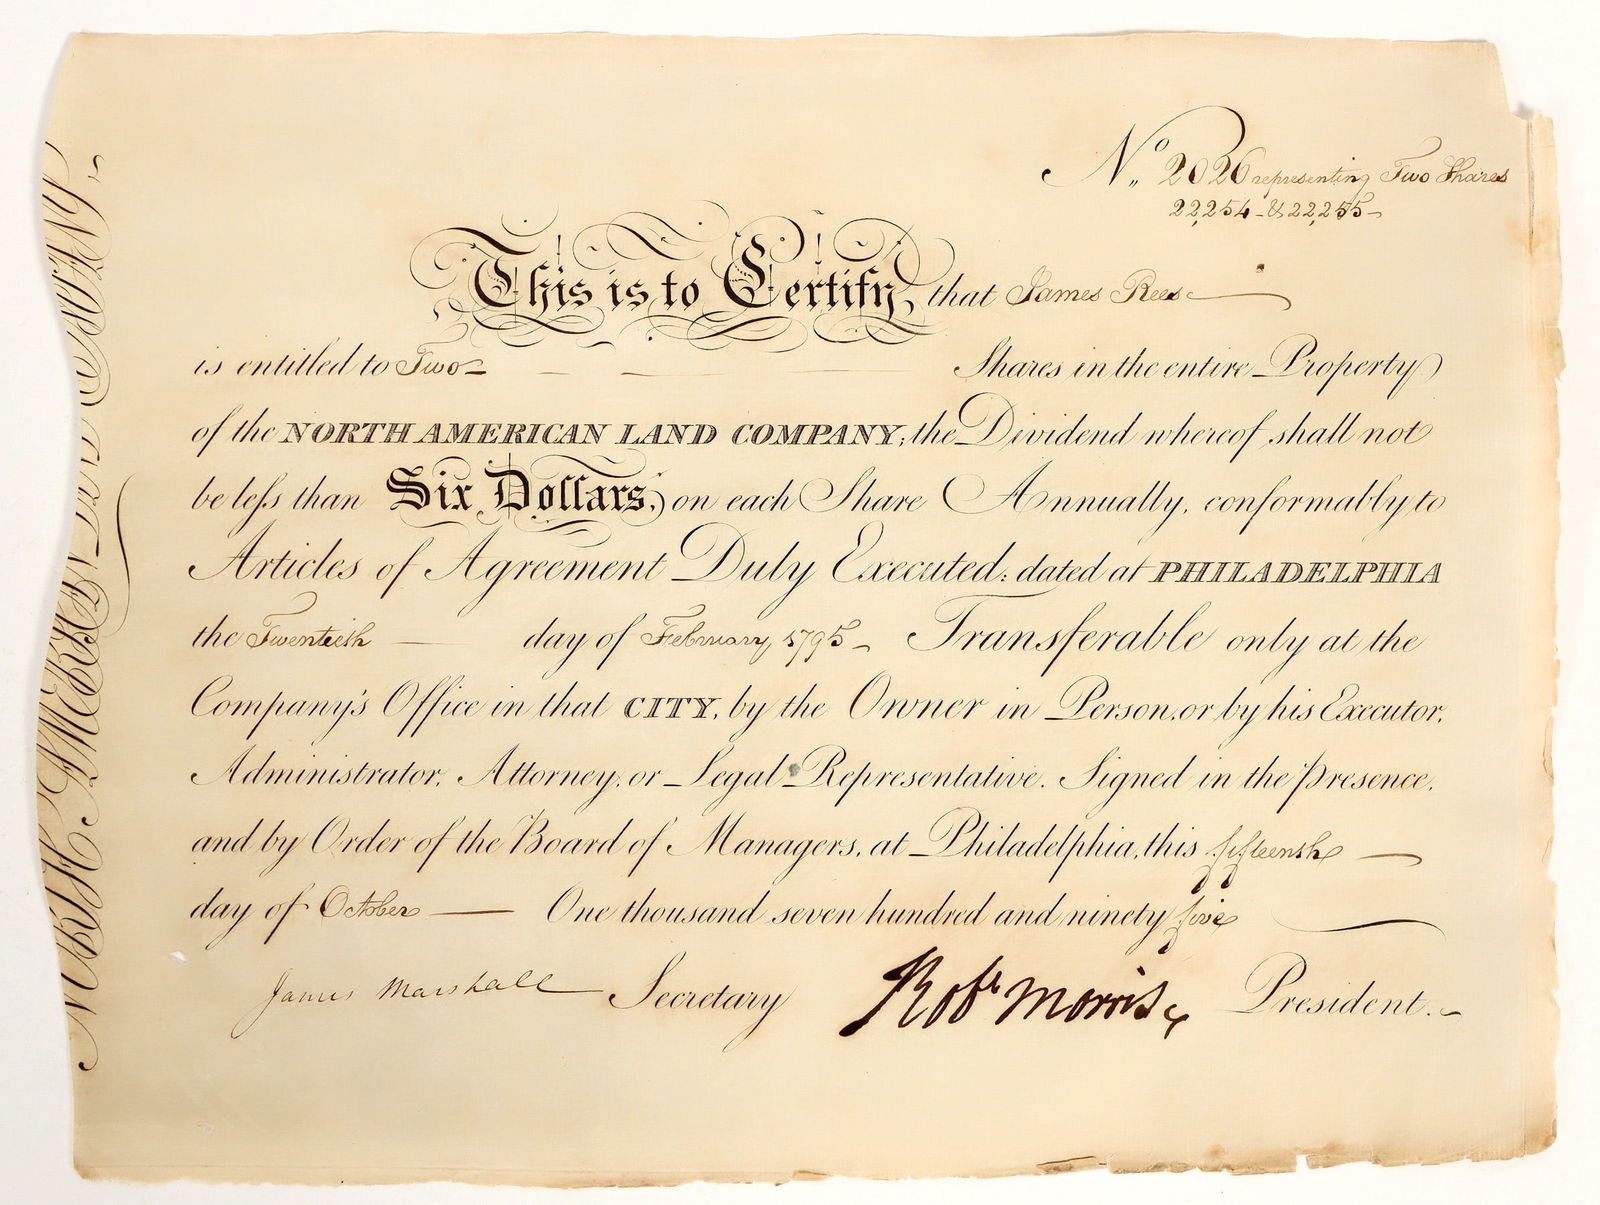 No. 2026 representing Two Shares
22,254 - & 22,255 -
This is to Certify, that James Rees
is entitled to Two Shares in the entire Property
of the NORTH AMERICAN LAND COMPANY; the Dividend whereof shall not
be leſs than Six Dollars, on each Share Annually, conformably to
Articles of Agreement Duly Executed; dated at PHILADELPHIA
the Twentieth day of February 1795 - Transferable only at the
Company's Office in that CITY, by the Owner in Person, or by his Executor,
Administrator, Attorney, or Legal Representative. Signed in the presence,
and by Order of the Board of Managers, at Philadelphia, this fifteenth
day of October One thousand seven hundred and ninety five
James Marshall Secretary Robt Morris President.
NORTH AMERICAN LAND COMPANY